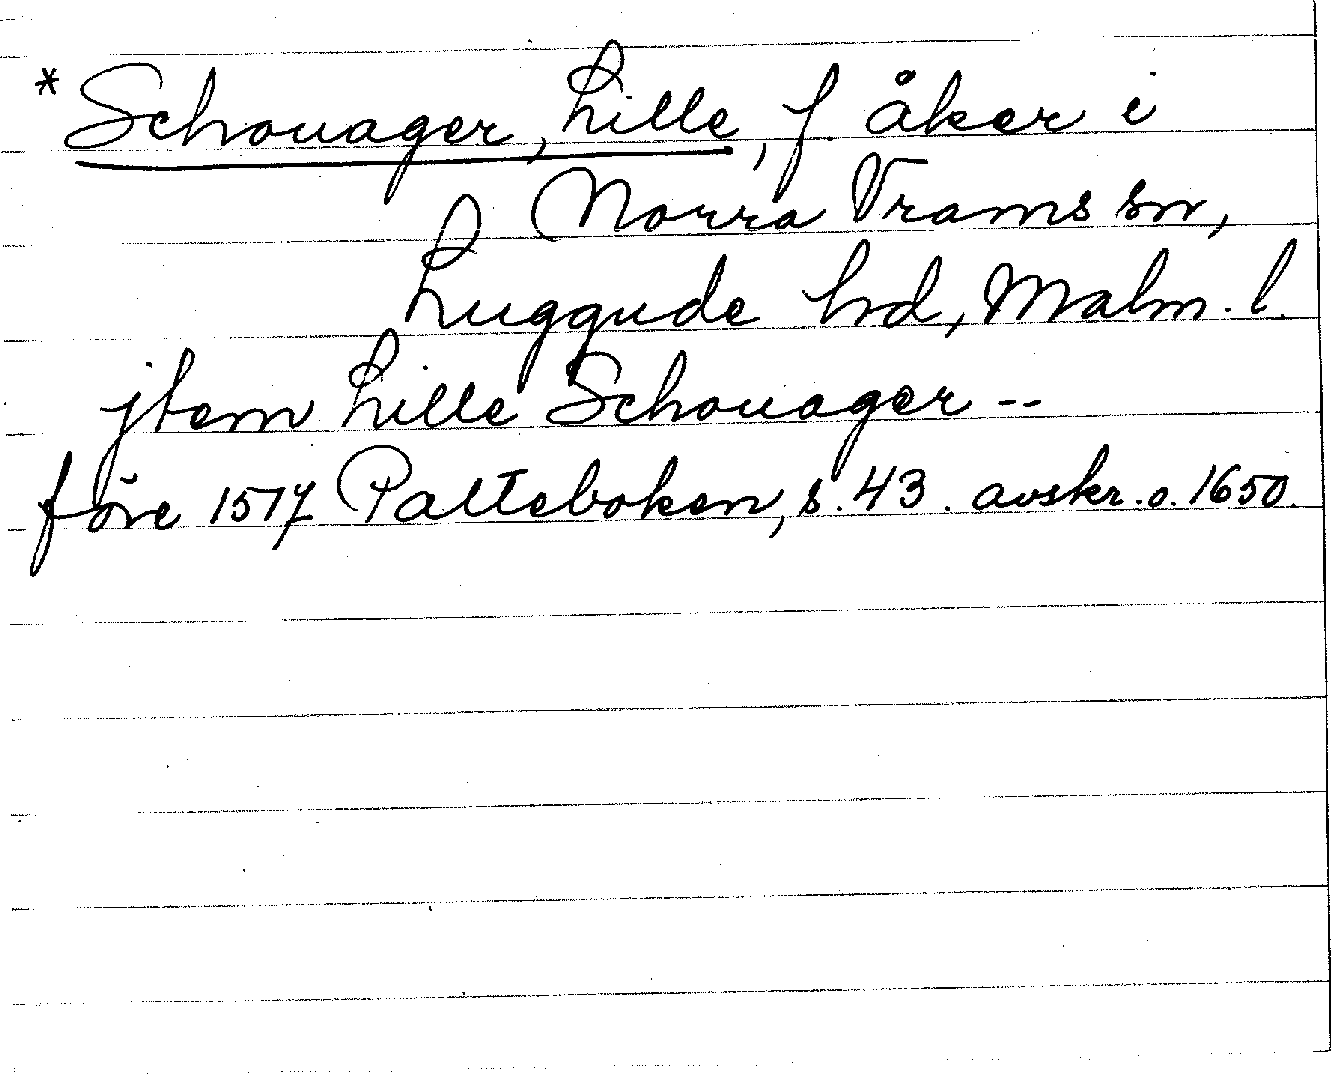 * Schouager, Lille, f. åker i
Norra Vrams sn,
Luggude hd, Malm. l.
jtem Lille Schouager --
före 1517 Palteboken, s. 43. avskr. o. 1650.